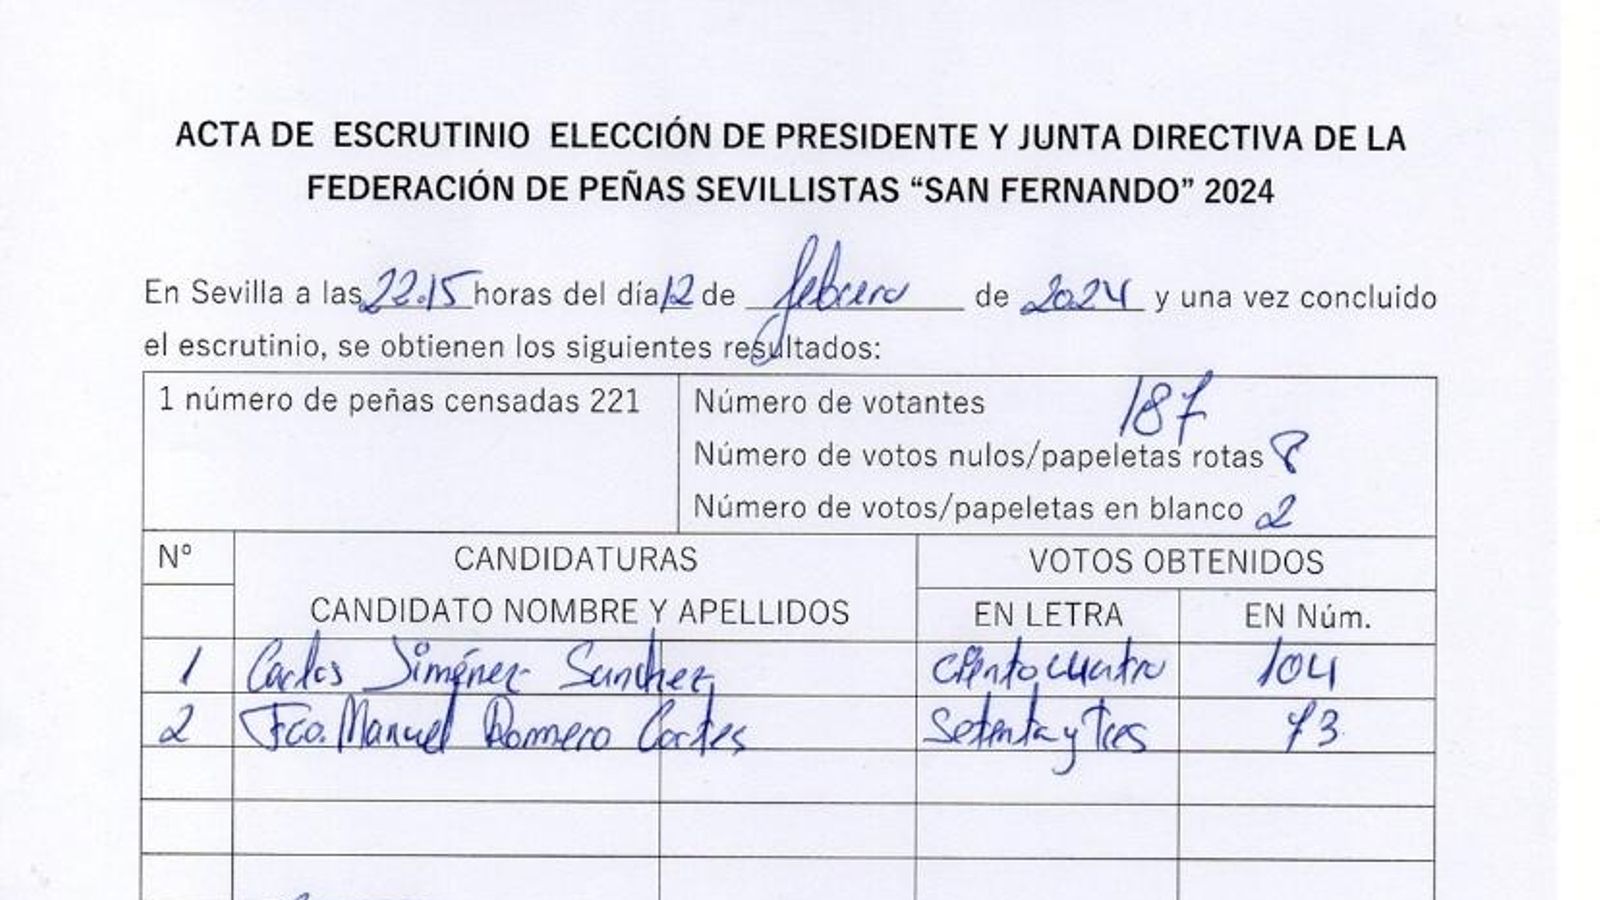 ACTA DE ESCRUTINIO ELECCIÓN DE PRESIDENTE Y JUNTA DIRECTIVA DE LA
FEDERACIÓN DE PEÑAS SEVILLISTAS “SAN FERNANDO” 2024
En Sevilla a las 22.15 horas del día 12 de febrero de 2024 y una vez concluido
el escrutinio, se obtienen los siguientes resultados:
1 número de peñas censadas 221
Número de votantes 187
Número de votos nulos/papeletas rotas 8
Número de votos/papeletas en blanco 2
Nº CANDIDATURAS VOTOS OBTENIDOS
CANDIDATO NOMBRE Y APELLIDOS EN LETRA EN Núm.
1 Carlos Jiménez Sanchez ciento cuatro 104
2 Fco. Manuel Romero Cortes Setenta y Tres 73